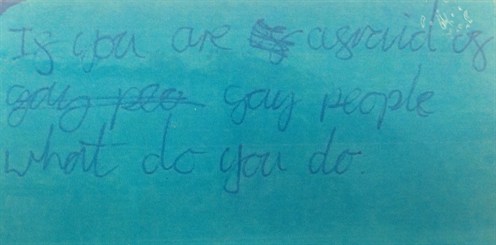 If you are afraid of
gay people
what do you do.